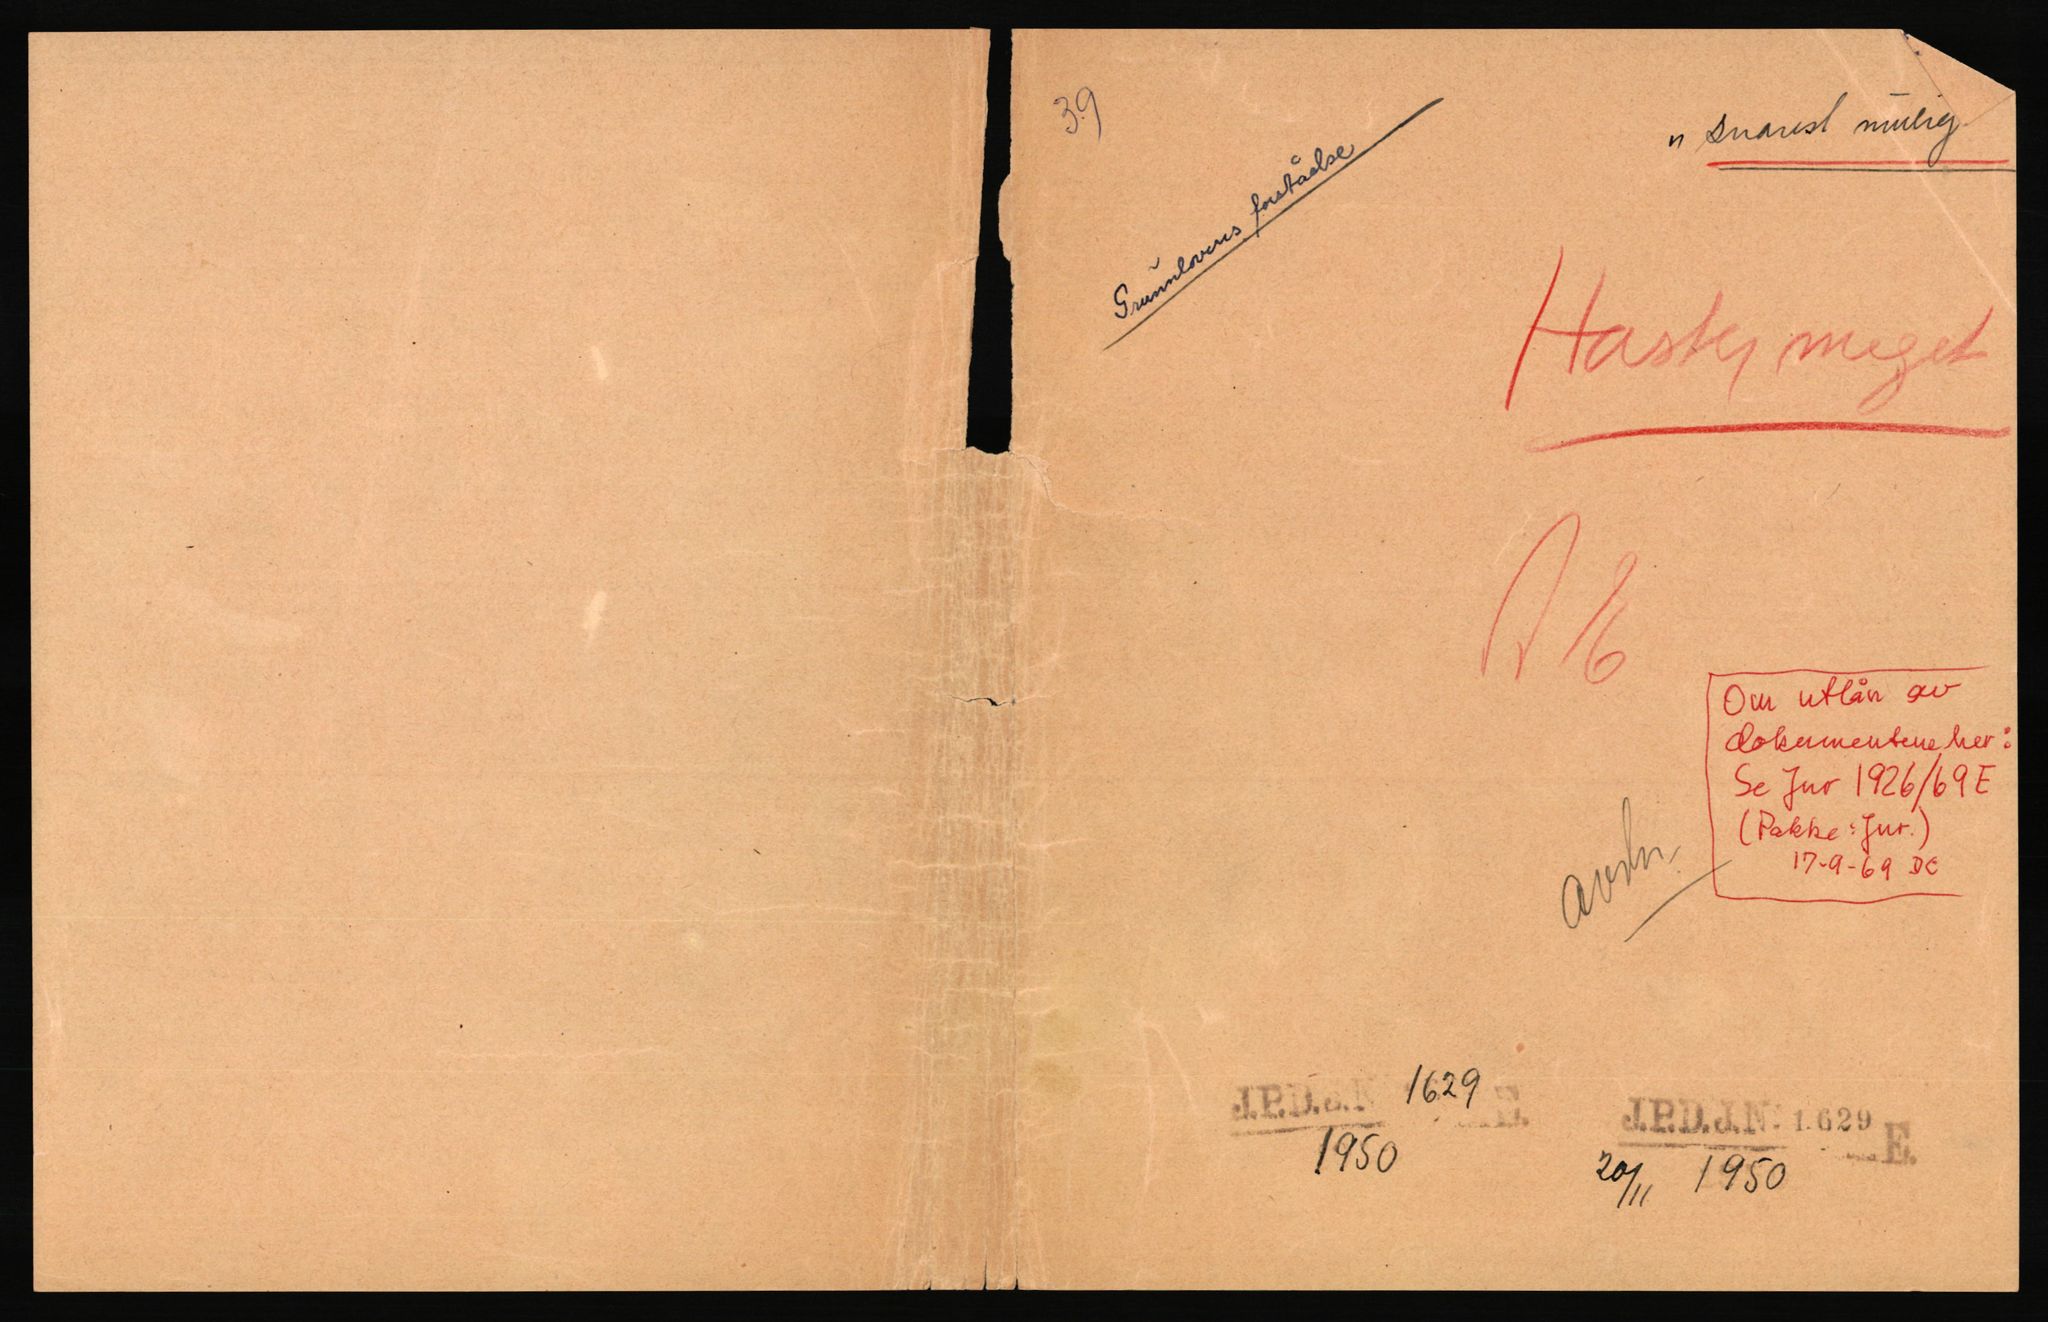 39
Grunnlovens forståelse
" Snarest mulig
Haster meget
E
Om utlån av
dokumentene her:
Se Jnr 1926/69 E
(Pakke: Jnr.)
17-9-69 DC
J.P.D.J.N 1629 E.
1950
J.P.D.J.Nº 1629 E.
20/11 1950